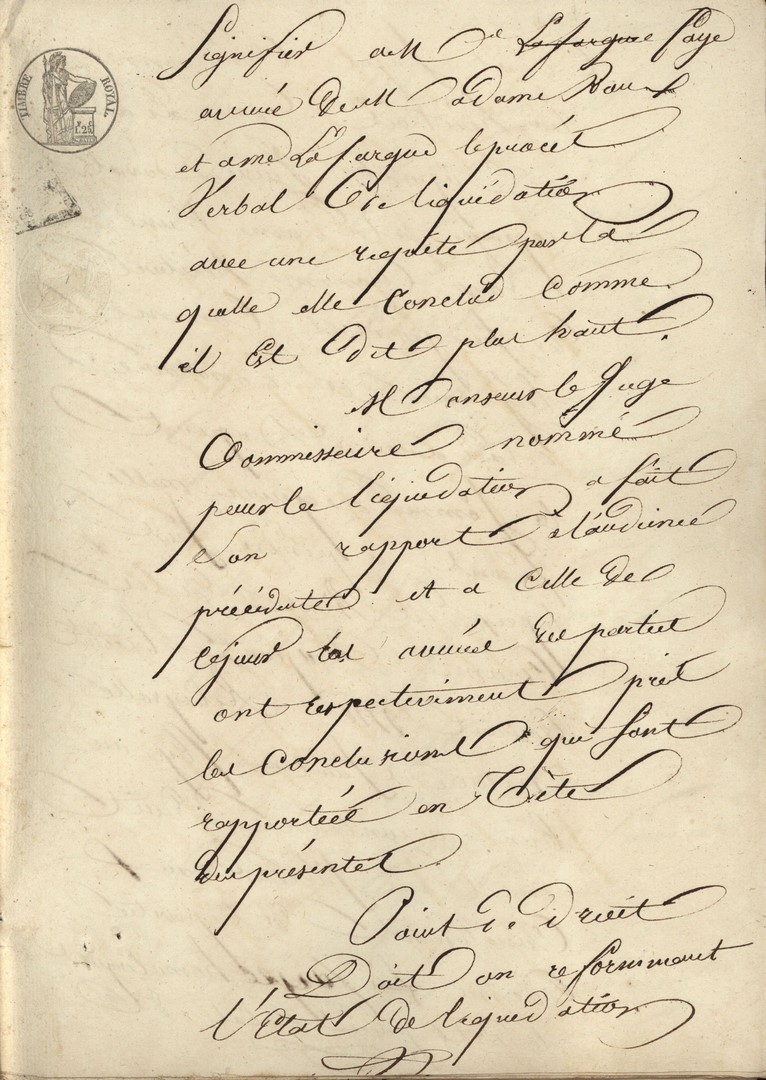 TIMBRE ROYAL
1f.25c
Signifier a M.e Lafargue Faye
avoué de Madame Raul
et ame Lafargue le procès
Verbal De liquidation
avec une requête par la
quelle elle Conclud comme
il Est Dit plus haut.
Monsieur le Juge
Commissaire nommé
pour la liquidation a fait
Son rapport à l'audience
précédente et a Celle de
Cejour les avoués des parties
ont respectivement pris
les Conclusions qui sont
rapportées en Tête
des présentes
Point de droit
Doit on reformant
l'Etat de liquidation